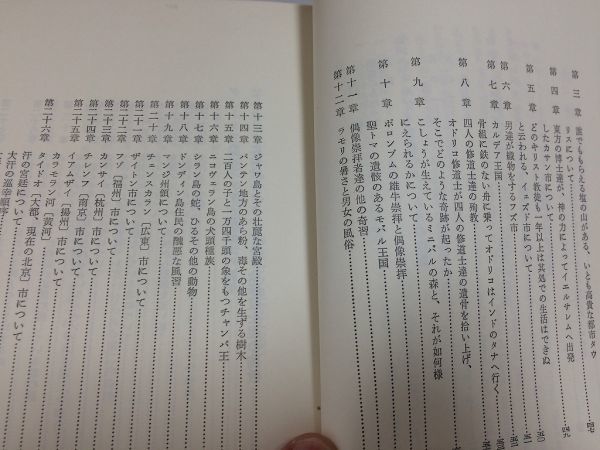 第三章 誰でももらえる塩の山がある、いとも高貴な都市タウ
リスについて 四七
第四章 東方の博士達が、神の力によってイエルサレムへ出発
したカサン市について 四九
第五章 どのキリスト教徒も一年以上は其処での生活はできぬ
と云われる、イェズド市について
第六章 男達が織物をするフズ市
第七章 カルデア王国
骨組に鉄のない舟に乗ってオドリコはインドのタナへ行く
四人の修道士達の殉教
第八章 オドリコ修道士が四人の修道士達の遺骨を拾い上げ、
そこでどのような奇跡が起ったか
第九章 こしょうが生えているミニバルの森と、それが如何様
にえられるかについて
第十章 ポロンブムの雄牛崇拝と偶像崇拝
聖トマの遺骸のあるモバル王国
第十一章 偶像崇拝者達の他の奇習
第十二章 ラモリの暑さと男女の風俗
第十三章 ジャワ島とその壮麗な宮殿
第十四章 パンテン地方のあら粉、毒その他を生ずる樹木
第十五章 二百人の子と一万四千頭の象をもつチャンパ王
第十六章 ニコヴェラン島の犬頭種族
第十七章 シラン島の蛇、ひるその他の動物
第十八章 ドンディン島住民の醜悪な風習
第十九章 マンジ州領について
第二十章 チェンスカラン〔広東〕市について
第二十一章 ザイトン市について
第二十二章 フゾ〔福州〕市について
第二十三章 カンサイ〔杭州〕市について
第二十四章 チレンフ〔南京〕市について
第二十五章 イアムザイ〔揚州〕市について
カラモラン河〔黄河〕
第二十六章 タイドオ〔大都、現在の北京〕市について
汗の宮廷について
大汗の巡幸順序